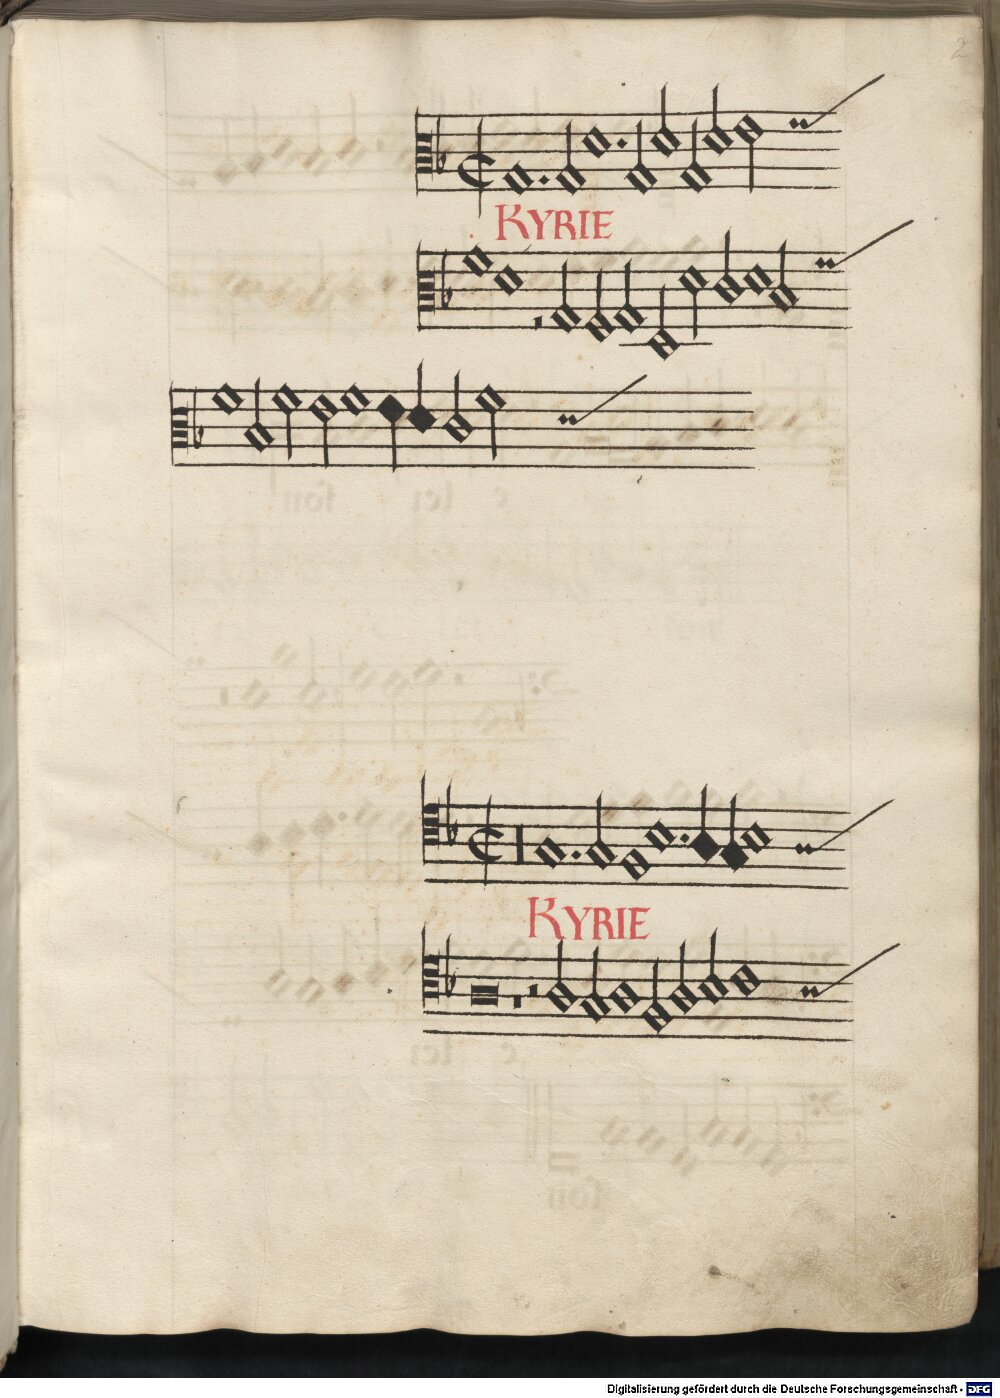 2
KYRIE
KYRIE
Digitalisierung gefördert durch die Deutsche Forschungsgemeinschaft - DFG